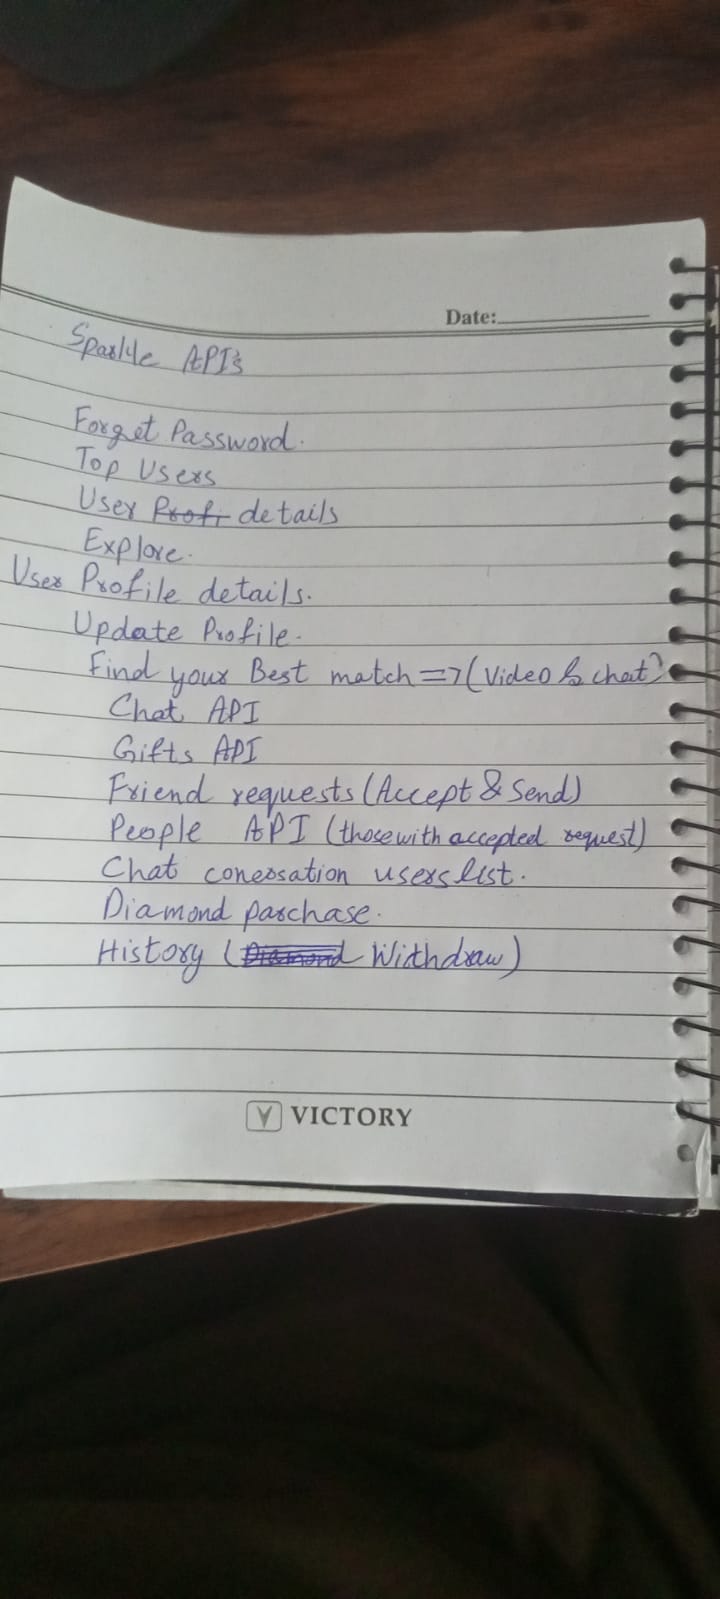 Date:
Sparkle API's
Forget Password.
Top Users
User Profi details
Explore.
User Profile details.
Update Profile.
Find your Best match => (Video & chat)
Chat API
Gifts API
Friend requests (Accept & Send)
People API (those with accepted request)
Chat conersation users list.
Diamond parchase.
History (Diamond Withdraw)
V VICTORY